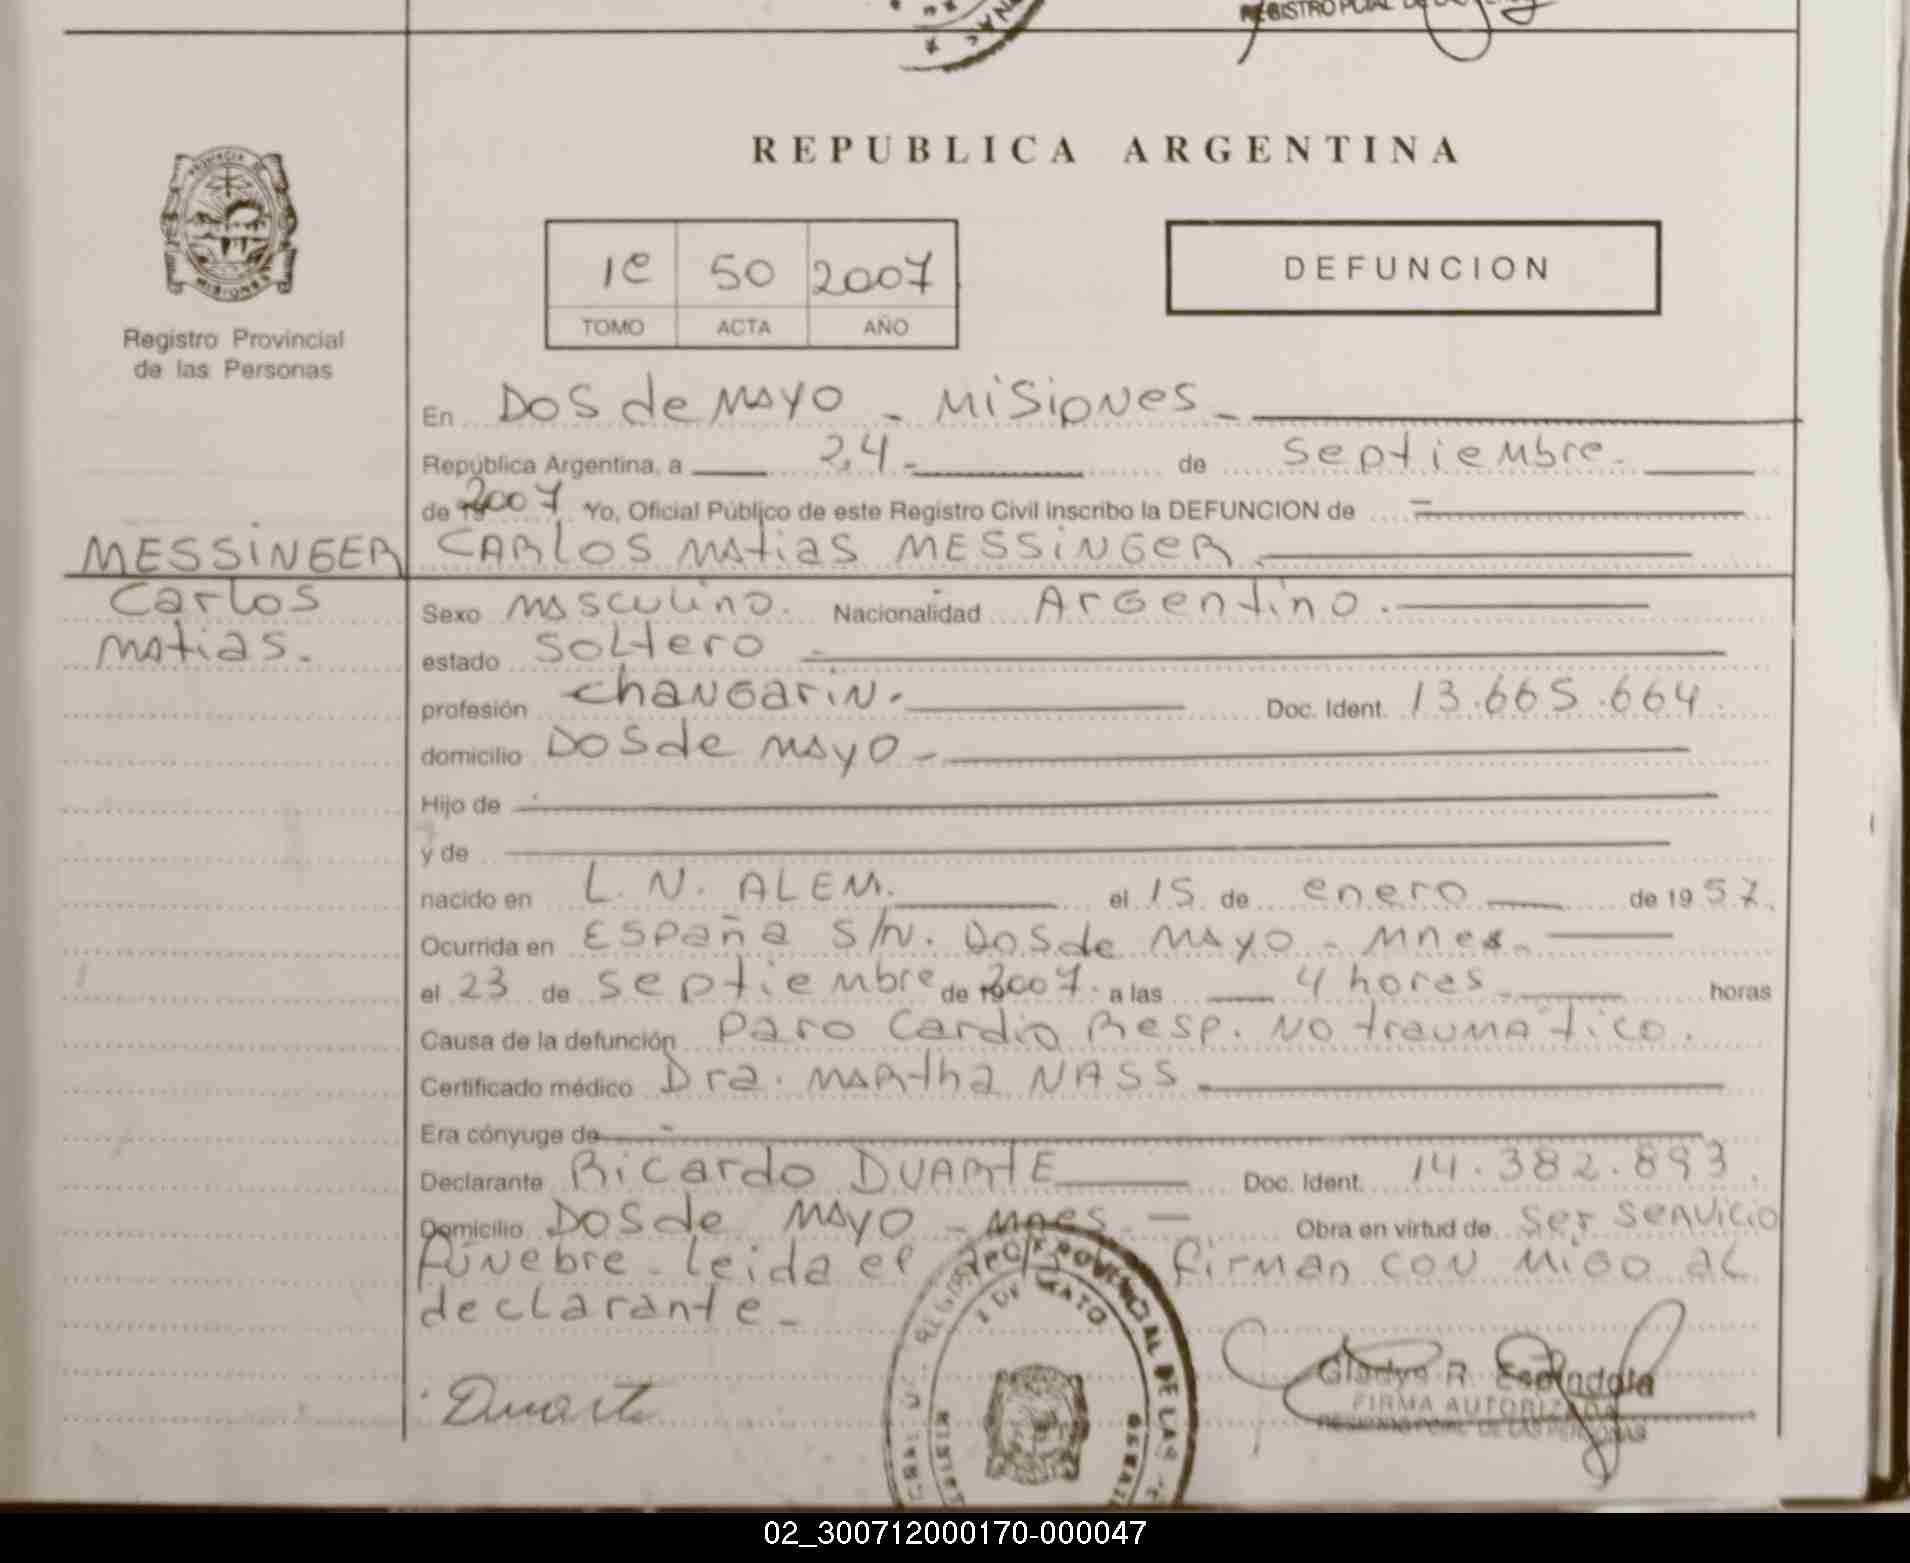 REGISTRO PCIAL DE
REPUBLICA ARGENTINA
PROVINCIA DE
MISIONES
1e 50 2007
TOMO ACTA AÑO
DEFUNCION
Registro Provincial
de las Personas
En Dos de mayo - Misiones -
República Argentina, a 24- de septiembre.
de 2007 Yo, Oficial Público de este Registro Civil inscribo la DEFUNCION de
MESSINGER
Carlos
matias.
CARLOS matias MESSINGER
Sexo masculino. Nacionalidad Argentino.
estado soltero
profesión changarin. Doc. Ident. 13.665.664
domicilio Dos de mayo -
Hijo de
y de
nacido en L. N. ALEM. el 15 de enero de 1957.
Ocurrida en España S/N. Dos de mayo - Mnes.
el 23 de septiembre de 2007. a las 4 hores horas
Causa de la defunción paro Cardio Resp. No traumático.
Certificado médico Dra. Martha NASS
Era cónyuge de
Declarante Ricardo DUARTE Doc. Ident. 14.382.893.
Domicilio Dos de mayo - Mnes. - Obra en virtud de ser servicio
fúnebre - leida el firman con migo al
declarante -
Duarte
2 DE MAYO
PROVINCIAL DE LAS
Gladys R.
FIRMA AUTORIZADA
REGISTRO PCIAL. DE LAS PERSONAS
02_300712000170-000047